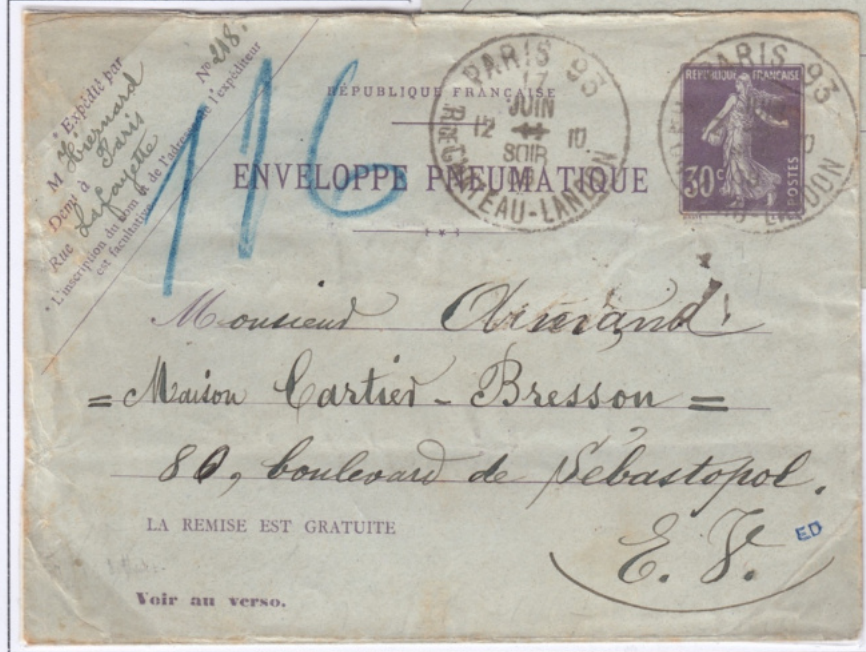 N° 218.
* Expédié par
M Hiernard
Demt à Paris
Rue Lafayette
* L'inscription du nom & de l'adresse de l'expéditeur
est facultative
116
RÉPUBLIQUE FRANÇAISE
ENVELOPPE PNEUMATIQUE
PARIS 93
17
JUIN
12 10
SOIR
R. DU CHATEAU-LANDON
PARIS 93
LANDON
RÉPUBLIQUE FRANÇAISE
30c
POSTES
Monsieur Armand
= Maison Cartier - Bresson =
80, boulevard de Sébastopol.
LA REMISE EST GRATUITE
E. V.
ED
Voir au verso.